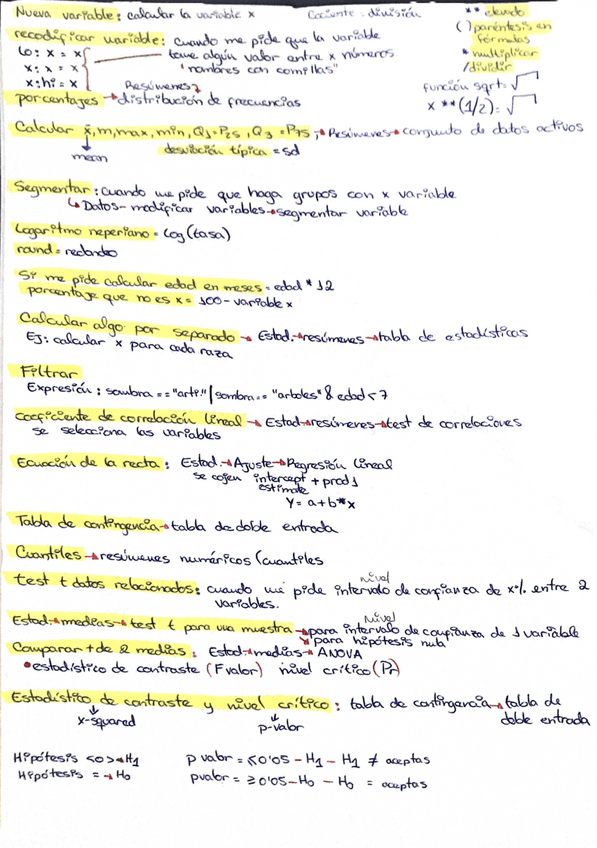 Nueva variable: calcular la variable x   Cociente: división   ** elevado
recodificar variable: cuando me pide que la variable   ( ) paréntesis en fórmulas
lo: x = x   tome algún valor entre x números   * multiplicar
x: x = x   "nombres con comillas"   / dividir
x: hi = x   Resúmenes   función sqrt: √
porcentajes → distribución de frecuencias   x **(1/2) = √
Calcular x̄, m, max, min, Q1 = P25, Q3 = P75, → Resúmenes → conjunto de datos activos
mean   desviación típica = sd
Segmentar: cuando me pide que haga grupos con x variable
↳ Datos → modificar variables → segmentar variable
Logaritmo neperiano = log(tasa)
round = redondeo
Si me pide calcular edad en meses = edad * 12
porcentaje que no es x = 100 - variable x
Calcular algo por separado → Estad. → resúmenes → tabla de estadísticas
Ej: calcular x para cada raza
Filtrar
Expresión: sombra == "arti" | sombra == "arboles" & edad < 7
coeficiente de correlación lineal → Estad → resúmenes → test de correlaciones
se selecciona las variables
Ecuación de la recta: Estad. → Ajuste → Regresión lineal
se cojen intercept + prod1
estimate
Y = a + b*x
Tabla de contingencia → tabla de doble entrada
Cuantiles → resúmenes numéricos (cuantiles
test t datos relacionados: cuando me pide intervalo de confianza de x% entre 2
nivel
variables.
Estad → medias → test t para una muestra → para intervalo de confianza de 1 variable
nivel
→ para hipótesis nula
Comparar + de 2 medias: Estad → medias → ANOVA
• estadístico de contraste (F valor)   nivel crítico (Pr)
Estadístito de contraste y nivel crítico: tabla de contingencia → tabla de
x-squared   p-valor   doble entrada
Hipótesis <0> → H1   p valor = ≤0'05 - H1 - H1 ≠ aceptas
Hipótesis = → H0   pvalor = ≥0'05 - H0 - H0 = aceptas